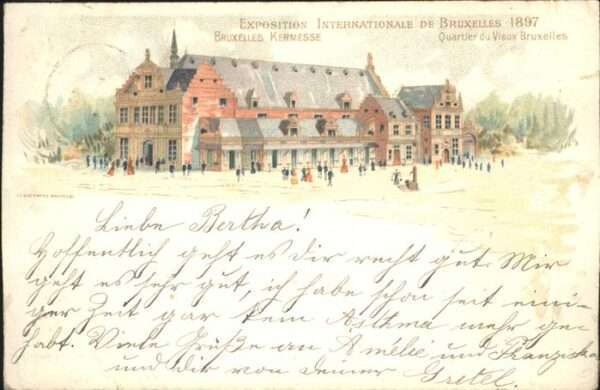 EXPOSITION INTERNATIONALE DE BRUXELLES 1897
BRUXELLES KERMESSE Quartier du Vieux Bruxelles
Liebe Bertha!
Hoffentlich geht es dir recht gut. Mir
geht es sehr gut, ich habe schon seit eini-
ger Zeit gar kein Asthma mehr ge-
habt. Viele Grüße an Amélie und Franziska
und dir von deiner Gretel